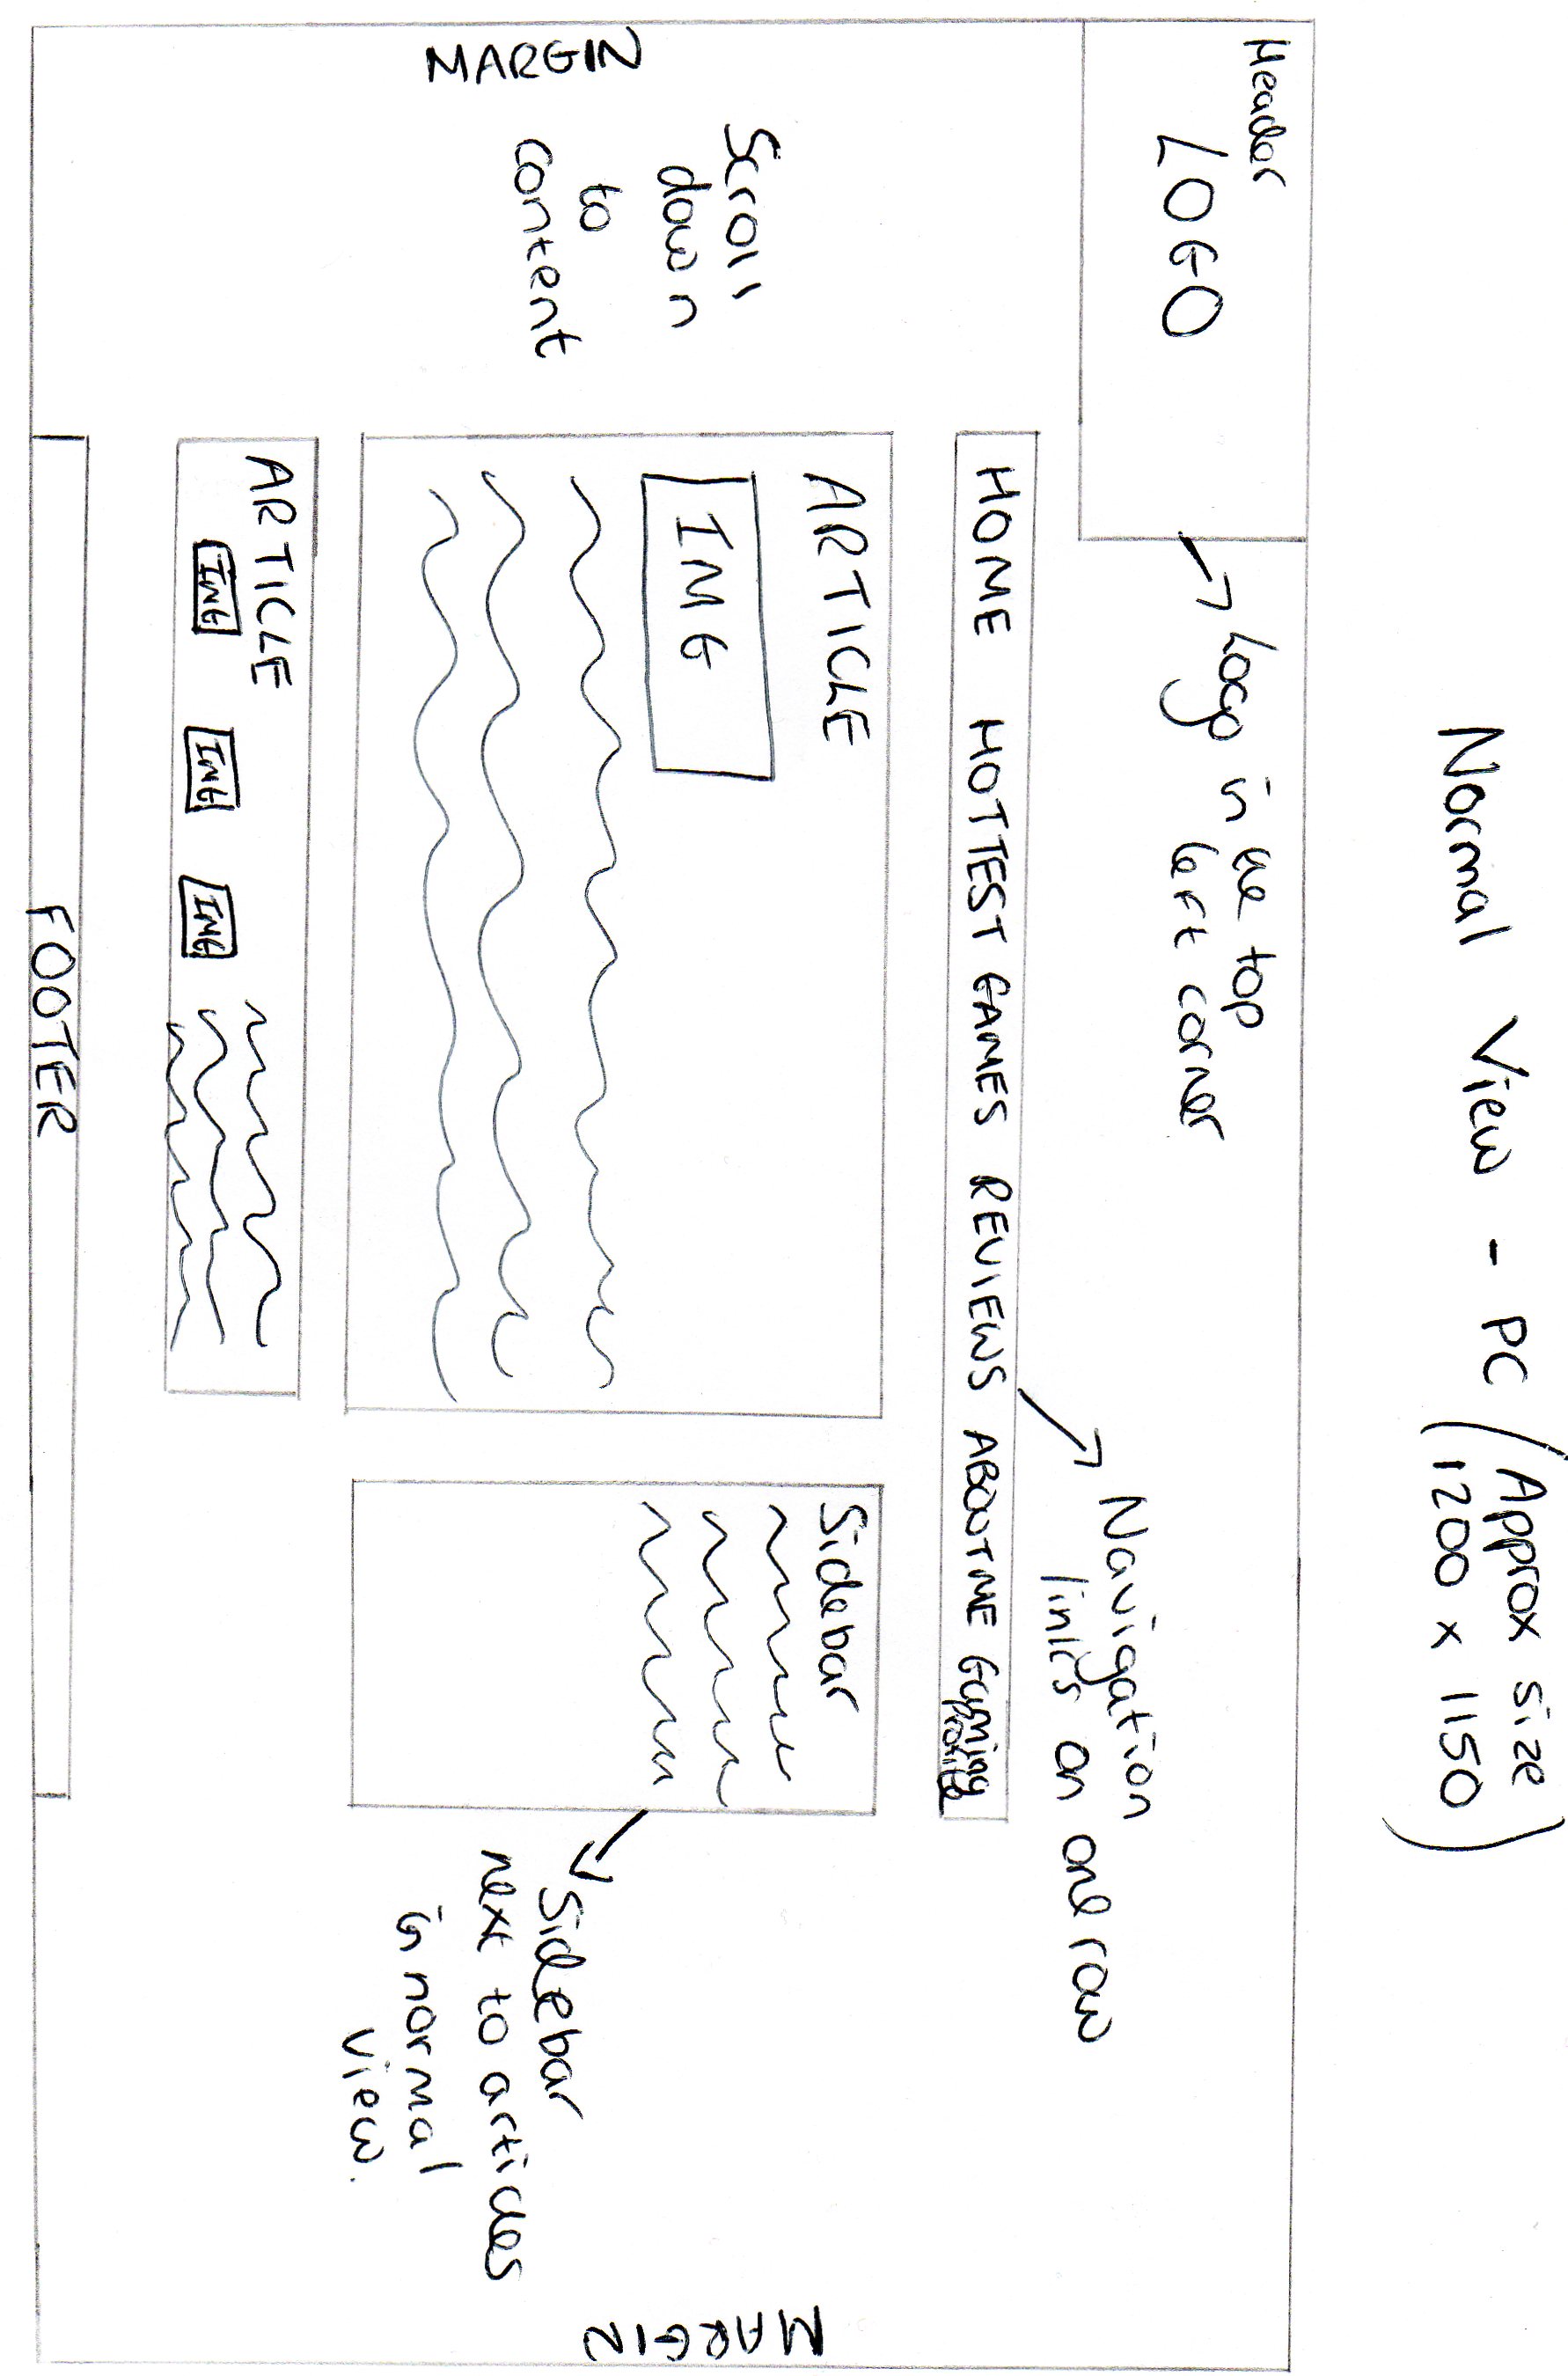 Normal View - PC (Approx size
1200 x 1150)
Header
LOGO
Logo in the top
left corner
Navigation
links on one row
HOME HOTTEST GAMES REVIEWS ABOUT ME Gaming
Profile
ARTICLE
IMG
Sidebar
Scroll
down
to
content
MARGIN
MARGIN
Sidebar
next to articles
in normal
view.
ARTICLE
IMG IMG IMG
FOOTER